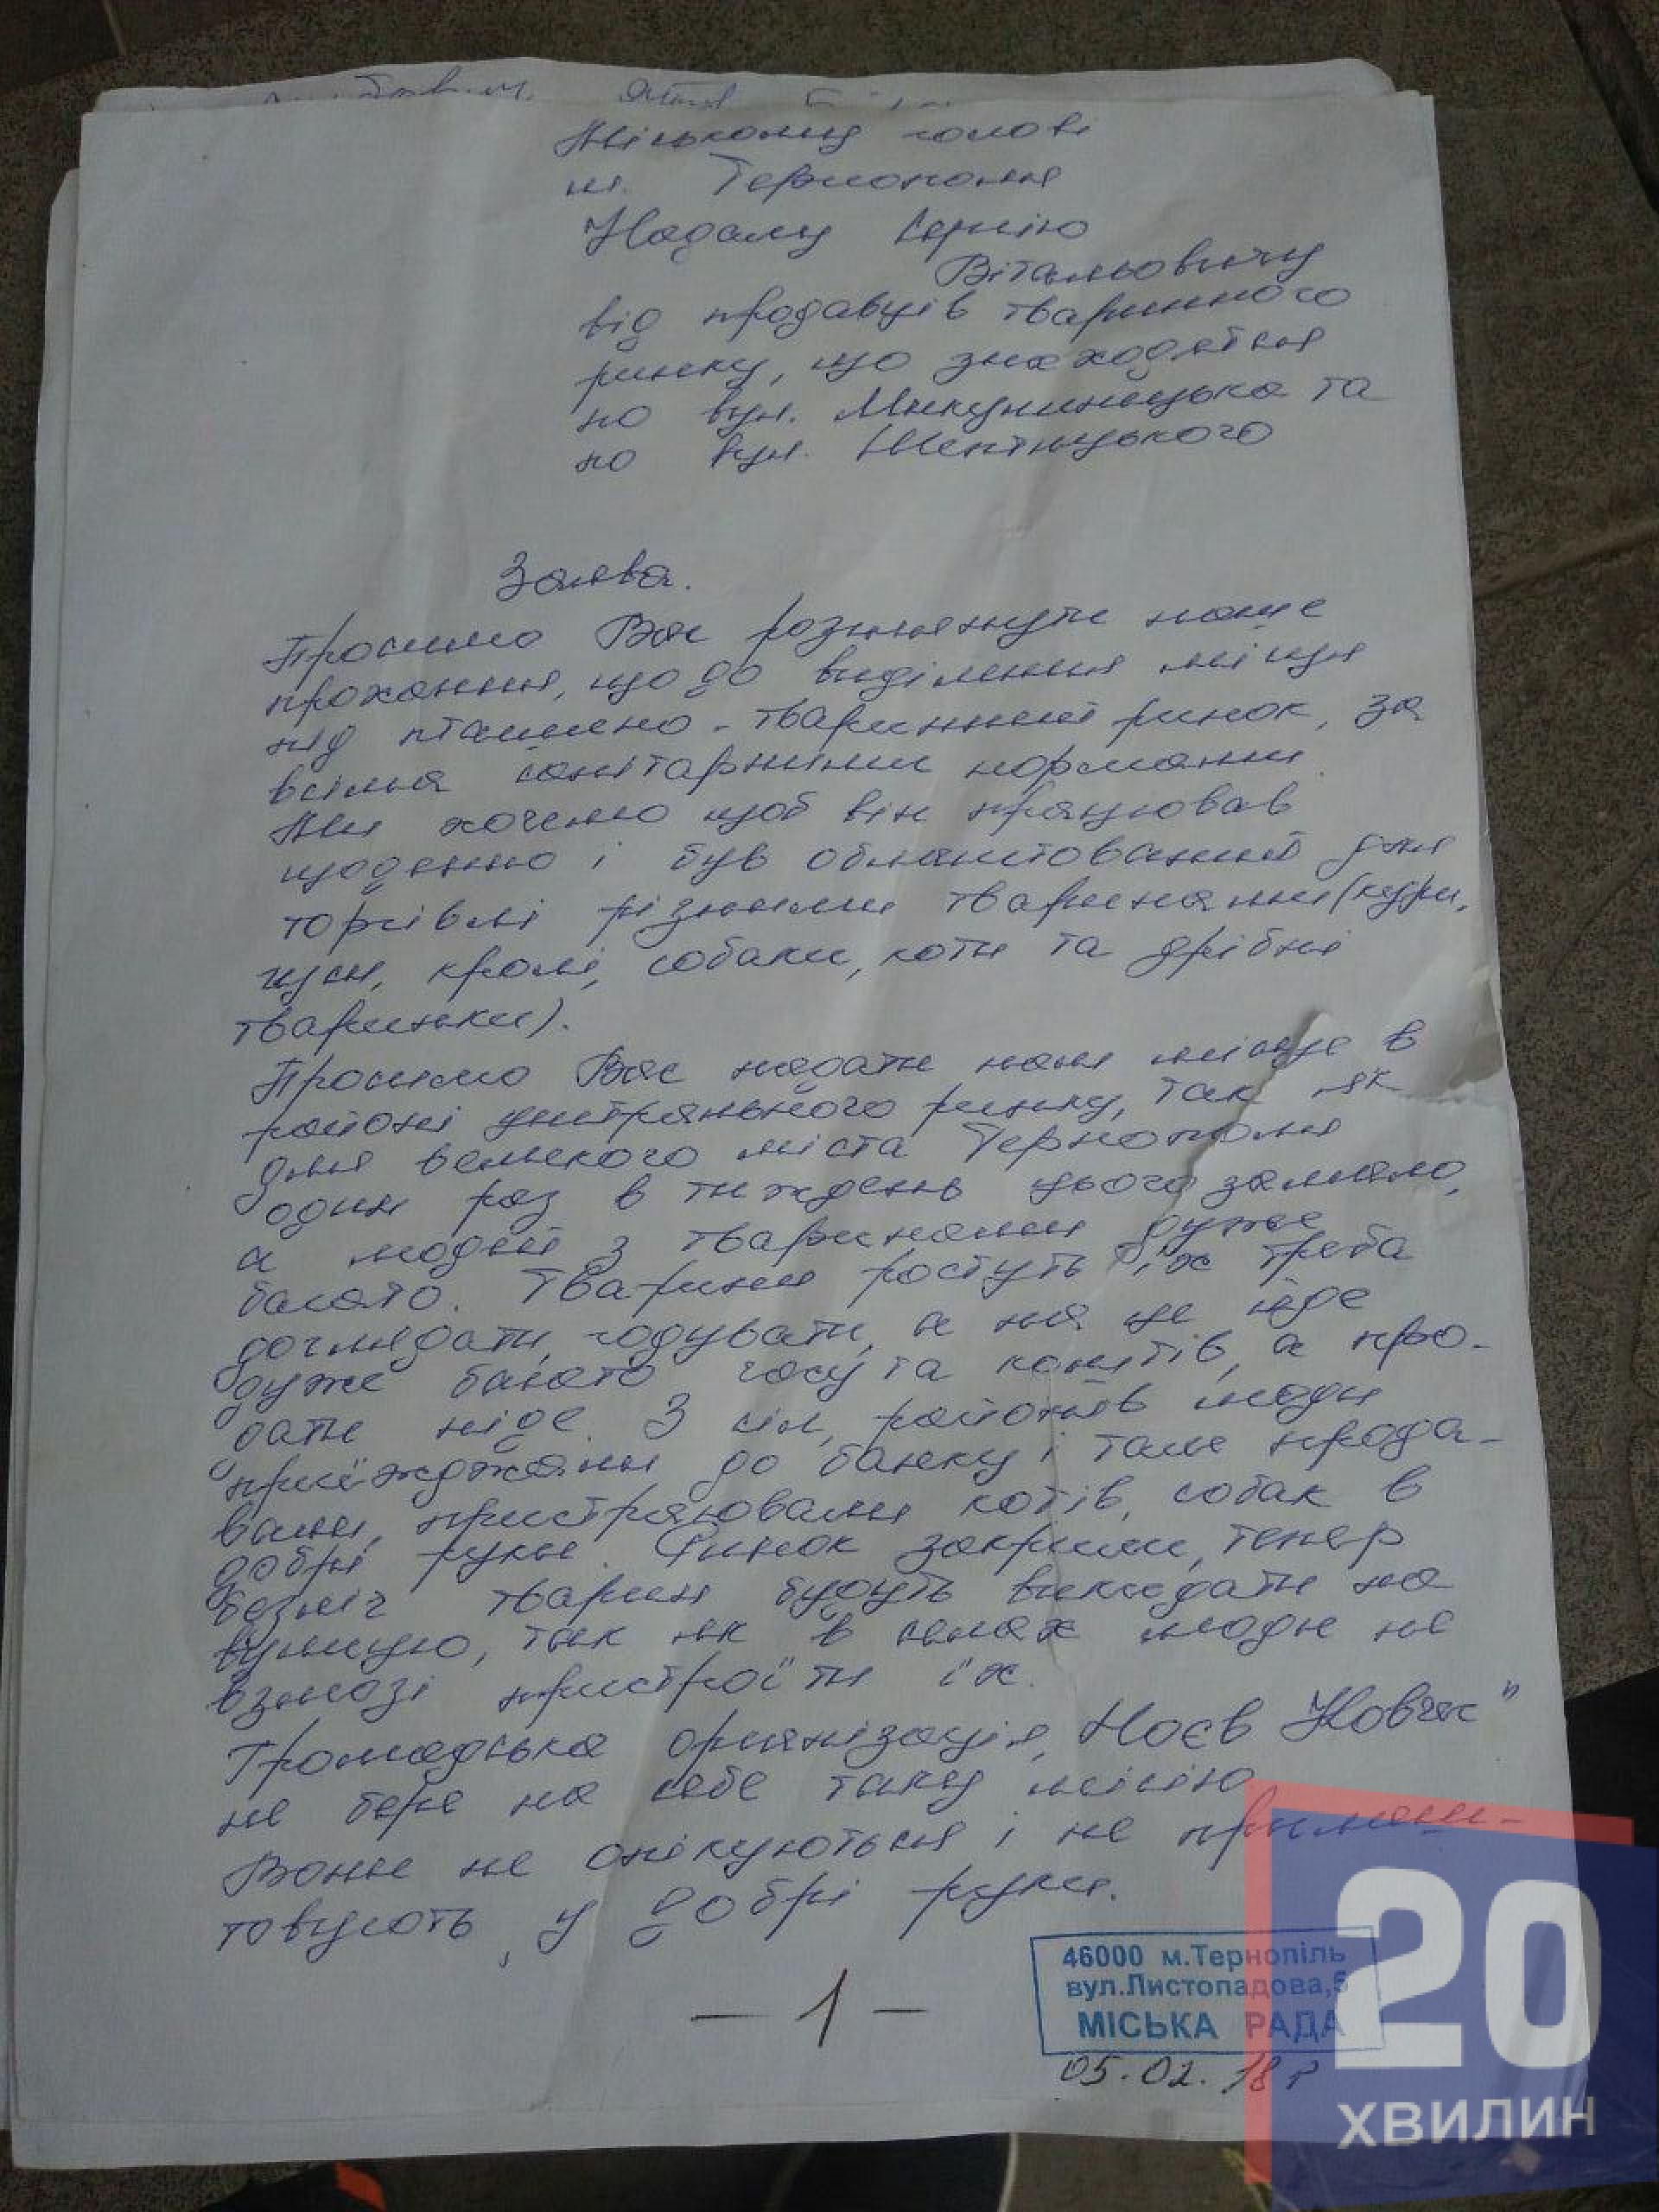 Міському голові
м. Тернополя
Надалу Сергію
Вітальовичу
від продавців тваринного
ринку, що знаходяться
по вул. Микулинецька та
по вул. Шептицького
Заява.
Просимо Вас розглянути наше
прохання, що до виділення місця
під пташино-тваринний ринок, за
всіма санітарними нормами.
Ми хочемо щоб він працював
щоденно і був облаштований для
торгівлі різними тваринами (кури,
гуси, кролі, собаки, коти та дрібні
тваринки).
Просимо Вас надати нам місце в
районі центрального ринку, так як
для великого міста Тернополя
один раз в тиждень цього замало,
а людей з тваринами дуже
багато. Тварини ростуть їх треба
доглядати, годувати, а на це йде
дуже багато часу та коштів, а про-
дати ніде. З сіл, районів люди
приїжджали до банку і там прода-
вали, пристроювали котів, собак в
добрі руки. Ринок закрили, тепер
безліч тварин будуть викидати на
вулицю, так як в селах люди не
взмозі пристроїти їх.
Громадська організація „Ноєв Ковчег"
не бере на себе таку місію
Вони не опікуються і не прилаш-
товують у добрі руки.
— 1 —
46000 м.Тернопіль
вул.Листопадова,5
МІСЬКА РАДА
05.02.18 р
20
ХВИЛИН